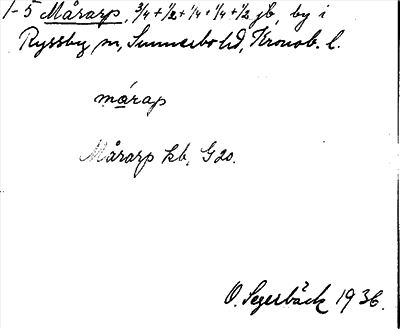 1-5 Mårarp, 3/4 + 1/2 + 1/4 + 1/4 + 1/2 jb, by i
Ryssby sn, Sunnerbo hd, Kronob. l.
márap
Mårarp kb, G20.
O. Segerbäck 1936.